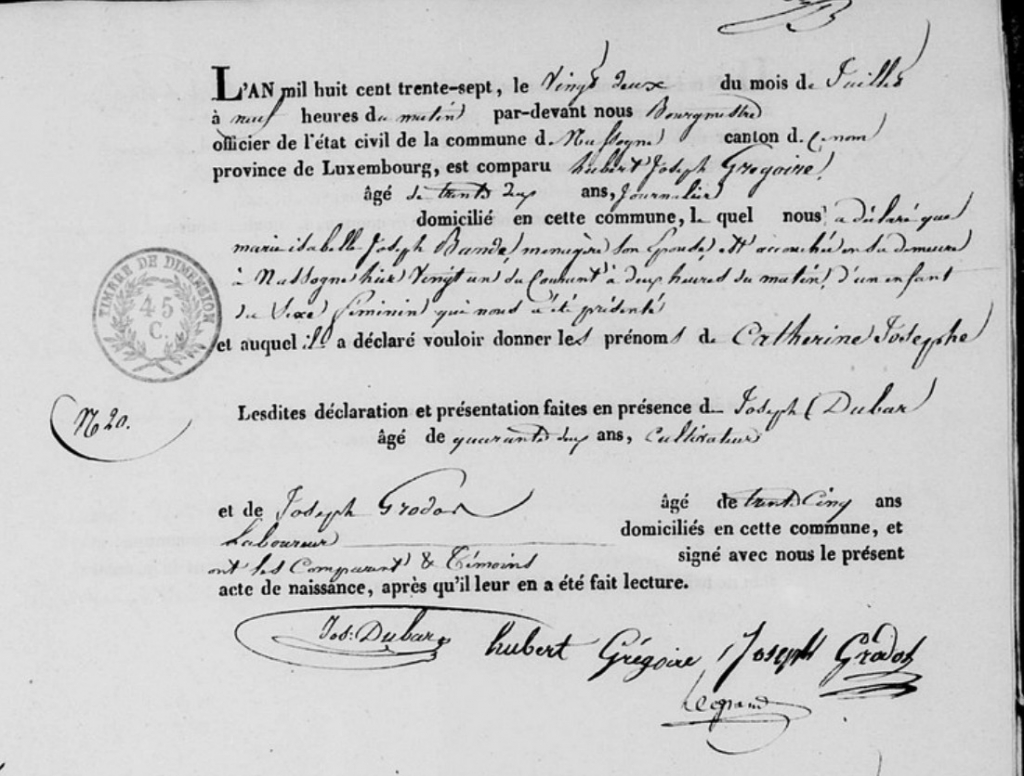 L'AN mil huit cent trente-sept, le Vingt deux du mois de Juillet
à neuf heures du matin par-devant nous Bourgmestre
officier de l'état civil de la commune de Nassogne canton d. ce nom
province de Luxembourg, est comparu hubert Joseph Gregoire
âgé de trente deux ans, Journalier
domicilié en cette commune, le quel nous a déclaré que
marie isabelle Joseph Bande, menagère son Epouse, est accouchée en sa demeure
à Nassogne hier Vingt un du Courant à deux heures du matin, d'un enfant
du Sexe feminin qui nous a été présenté
et auquel il a déclaré vouloir donner les prénoms de Catherine Josephe
TIMBRE DE DIMENSION
45
C.
N 20.
Lesdites déclaration et présentation faites en présence d Joseph Dubar
âgé de quarante deux ans, Cultivateur
et de Joseph Grodos âgé de trente Cinq ans
Laboureur domiciliés en cette commune, et
ont les Comparant & Témoins signé avec nous le présent
acte de naissance, après qu'il leur en a été fait lecture.
Jos: Dubar hubert Grégoire Joseph Grodos
Legrand